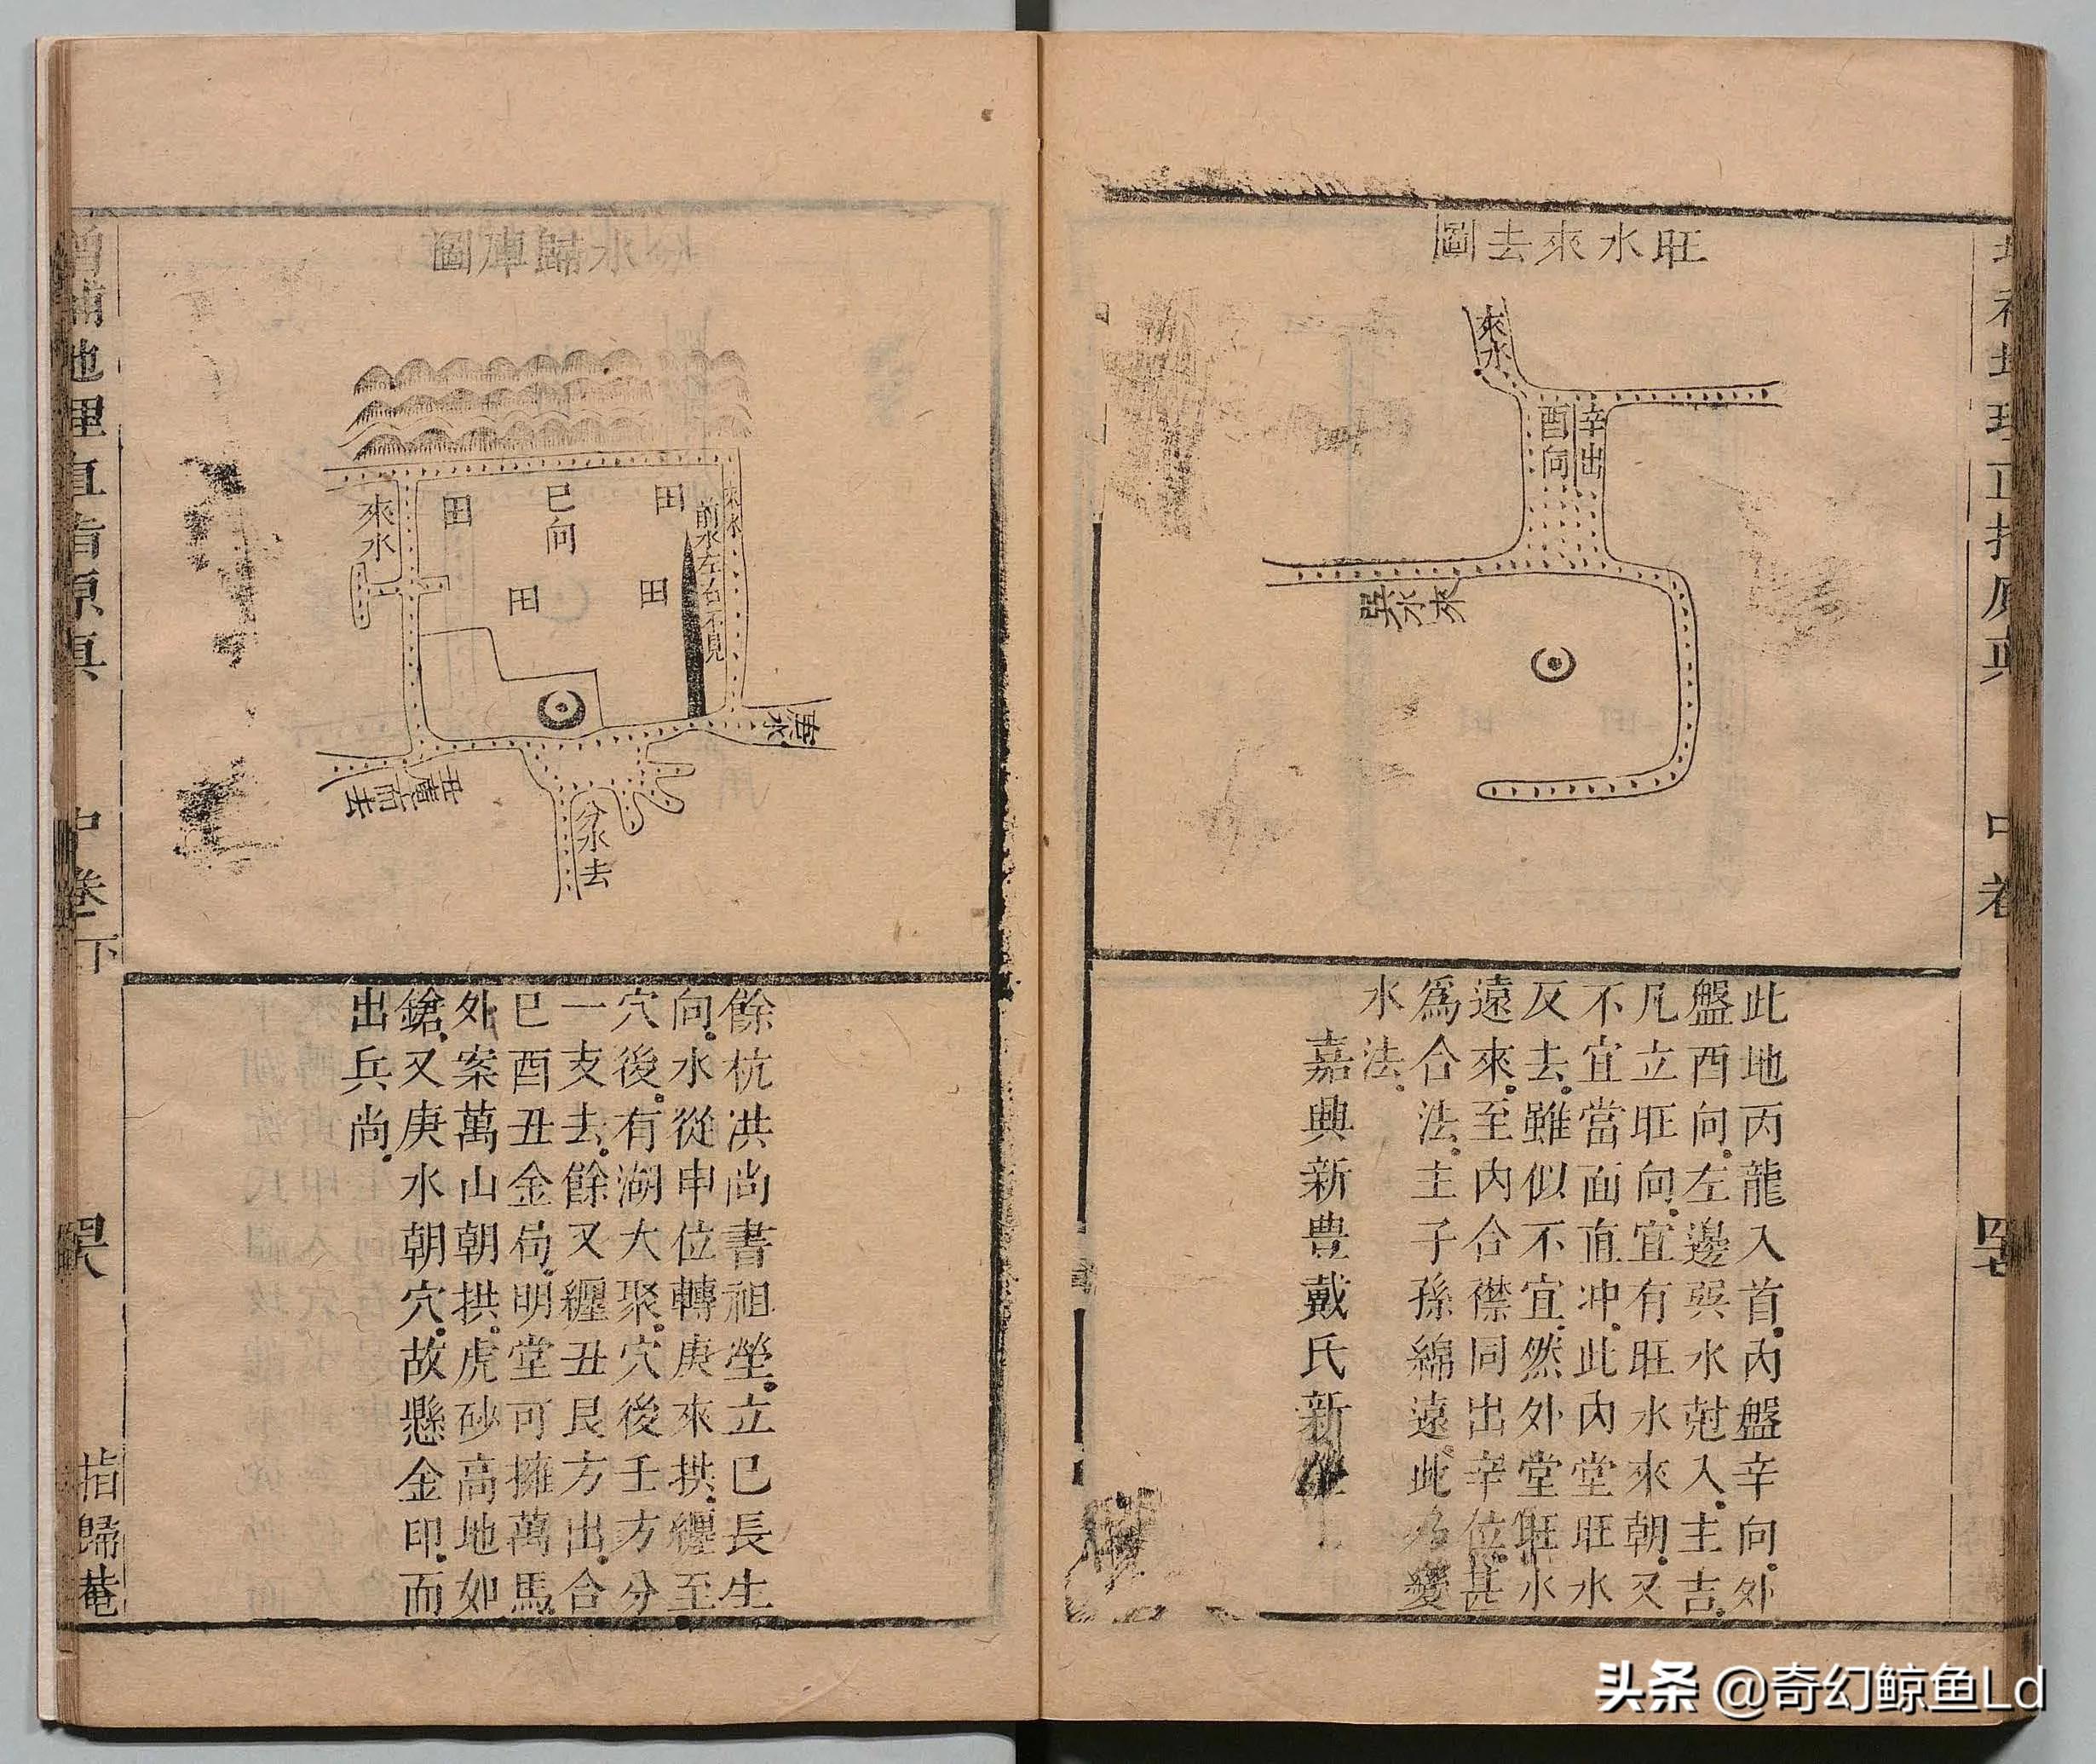 旺水來去圖
來水
辛出
酉向
巽水來
此地丙龍入首。內盤辛向。外
盤酉向。左邊巽水尅入。主吉。
凡立旺向。宜有旺水來朝。又
不宜當面直冲。此內堂旺水
反去。雖似不宜。然外堂旺水
遠來。至內合襟同出辛位。甚
為合法。主子孫綿遠。此乃變
水法。
嘉興新豊戴氏新
中卷
水歸庫圖
來水
前水左右不見
巳向
田
田
田
田
來水
庚水
丑艮而去
分水去
餘杭洪尚書祖塋。立巳長生
向。水從申位轉庚來拱。纒至
穴後。有湖大聚。穴後壬方分
一支去。餘又纒丑艮方出。合
巳酉丑金局。明堂可擁萬馬。
外案萬山朝拱。虎砂高地如
鎗。又庚水朝穴。故懸金印。而
出兵尚。
增補地理直指原真
中卷下
指歸菴
头条 @奇幻鲸鱼Ld